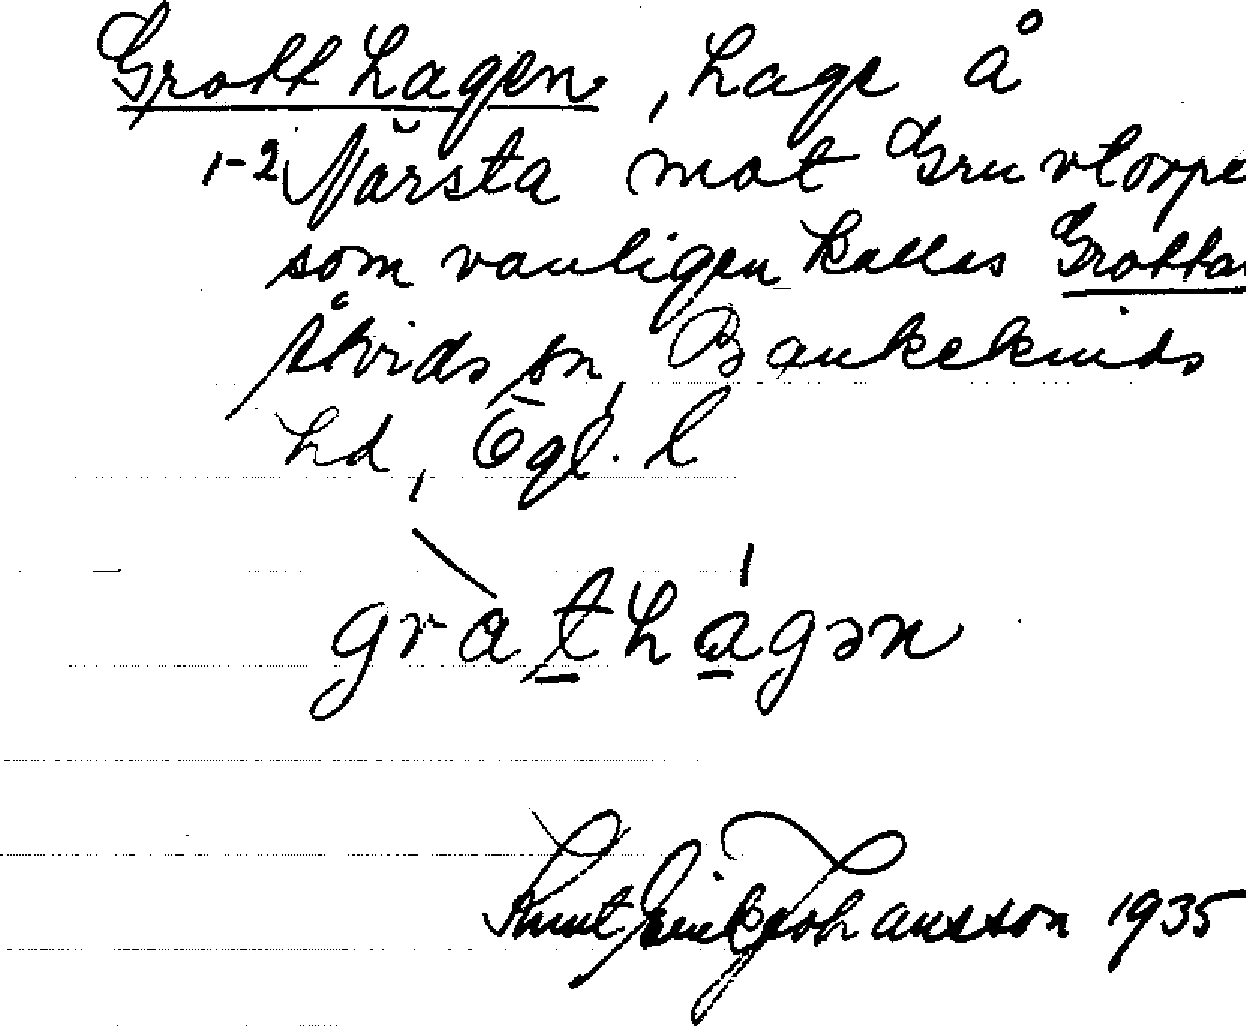 Grotthagen, hage å
1-2 Närsta mot Gruvtorpe
som vanligen kallas Grotta
Åtvids sn, Bankekinds
hd, Ögl. l
gràthágən
Knut Erik Johansson 1935